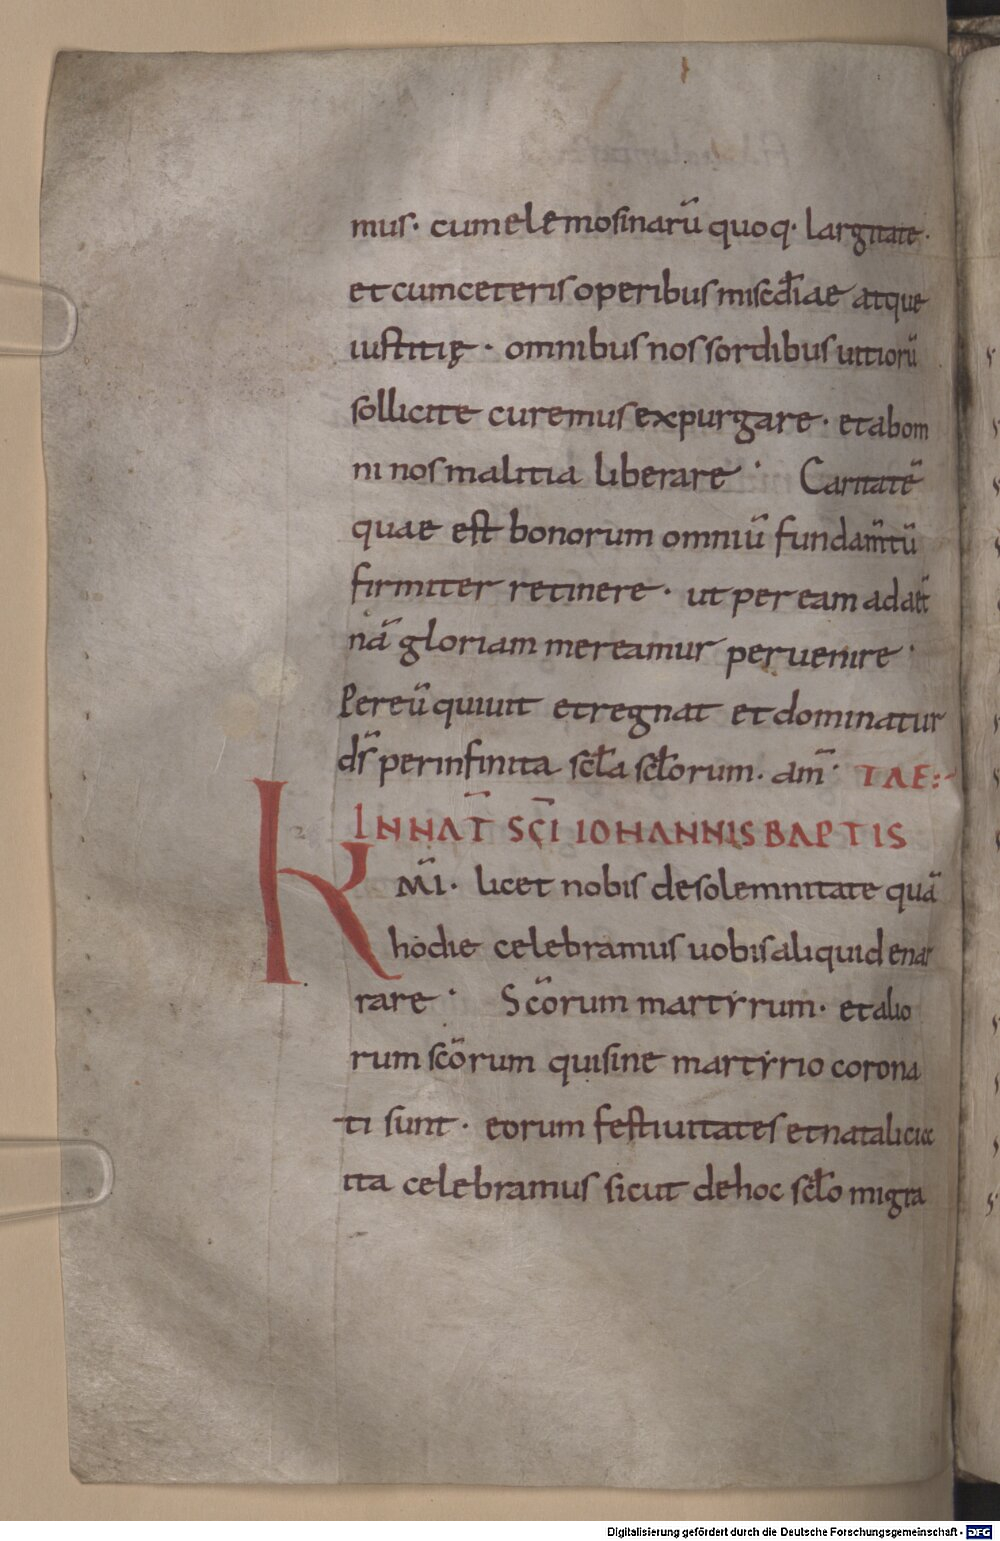 mus· cum elemosinarū quoq· largitate·
et cum ceteris operibus misc̄diae atque
iustitię · omnibus nos sordibus uitiorū
sollicite curemus expurgare· et ab om
ni nos malitia liberare · Caritatē
quae est bonorum omniū fundam̄tū
firmiter retinere· ut per eam ad aet̄
nā gloriam mereamur peruenire ·
Per eū qui uiuit et regnat et dominatur
ds̄ per infinita sc̄la sc̄lorum. am̄· TAE:-
IN NAT̄ SC̄I IOHANNIS BAPTIS
K M̄I· licet nobis de solemnitate quā
hodie celebramus uobis aliquid enar
rare · Sc̄orum martyrum· et alio
rum sc̄orum qui sine martyrio corona
ti sunt· eorum festiuitates et natalicia
ita celebramus sicut de hoc sc̄lo migra
Digitalisierung gefördert durch die Deutsche Forschungsgemeinschaft - DFG